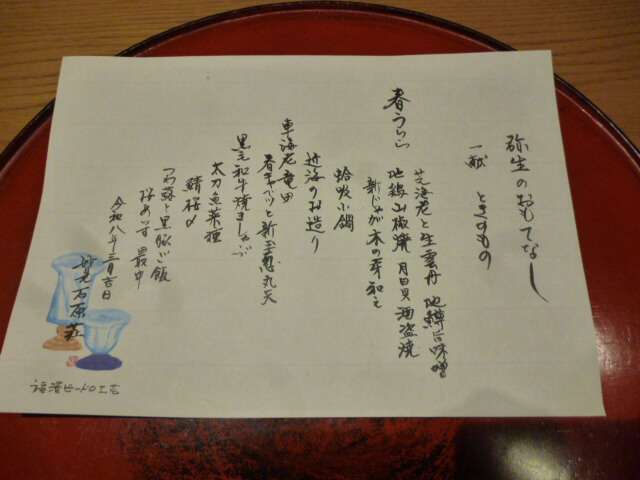 弥生のおもてなし
一献 ときのもの
春うらら
芝海老と生雲丹 地鱒旨味噌
地鶏山椒焼 月日貝酒盗焼
新じゃが木の芽和え
蛤吸小鍋
近海のお造り
車海老竜田
春キャベツと新玉葱丸天
黒毛和牛焼きしゃぶ
太刀魚菜種
鯖桜〆
つわ蕗と黒豚ご飯
桜あいす最中
令和八年三月吉日
妙見石原荘
福澤ビードロ工芸